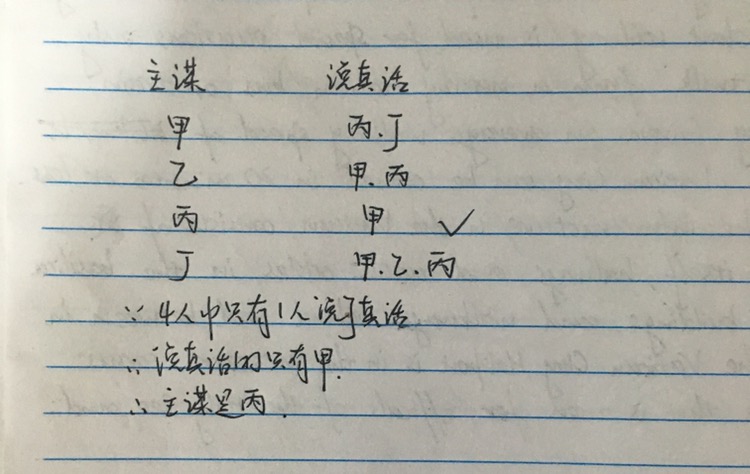 主谋 说真话
甲 丙.丁
乙 甲.丙
丙 甲 ✓
丁 甲.乙.丙
∵ 4人中只有1人说了真话
∴ 说真话的只有甲.
∴ 主谋是丙.